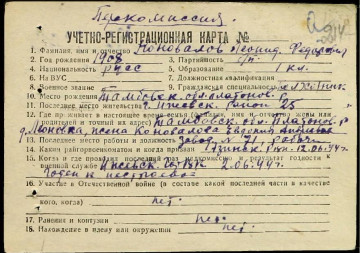 Перекомиссия.
УЧЕТНО-РЕГИСТРАЦИОННАЯ КАРТА №
1. Фамилия, имя и отчество Коновалов Леонид Федорович
2. Год рождения 1908 3. Партийность б/п
4. Национальность русс 5. Образование 1 кл.
6. На ВУС 7. Должностная квалификация
8. Военное звание 9. Гражданская специальность
10. Место рождения Тамбовск. обл. Платонов. р.
11. Последнее место жительства г. Ижевск. район 25
12. Где и кто живет в настоящее время семья (фамилия, имя и отчество жены или
родителей и точный их адрес) Тамбовск. обл. Платонов. р.
жена Коновалова Евдокия
13. Последнее место работы и должность завод № 71,
14. Каким райгорвоенкоматом и когда призван Азинск. рвк 12.06.44г
15. Когда и где проходил последний раз медкомиссию и результат годности к
военной службе Ижевск 2.06.44г.
Годен к нестроевой
16. Участие в Отечественной войне (в составе какой последней части в качестве
кого, когда) нет.
17. Ранения и контузии нет.
18. Нахождение в плену или окружении нет.